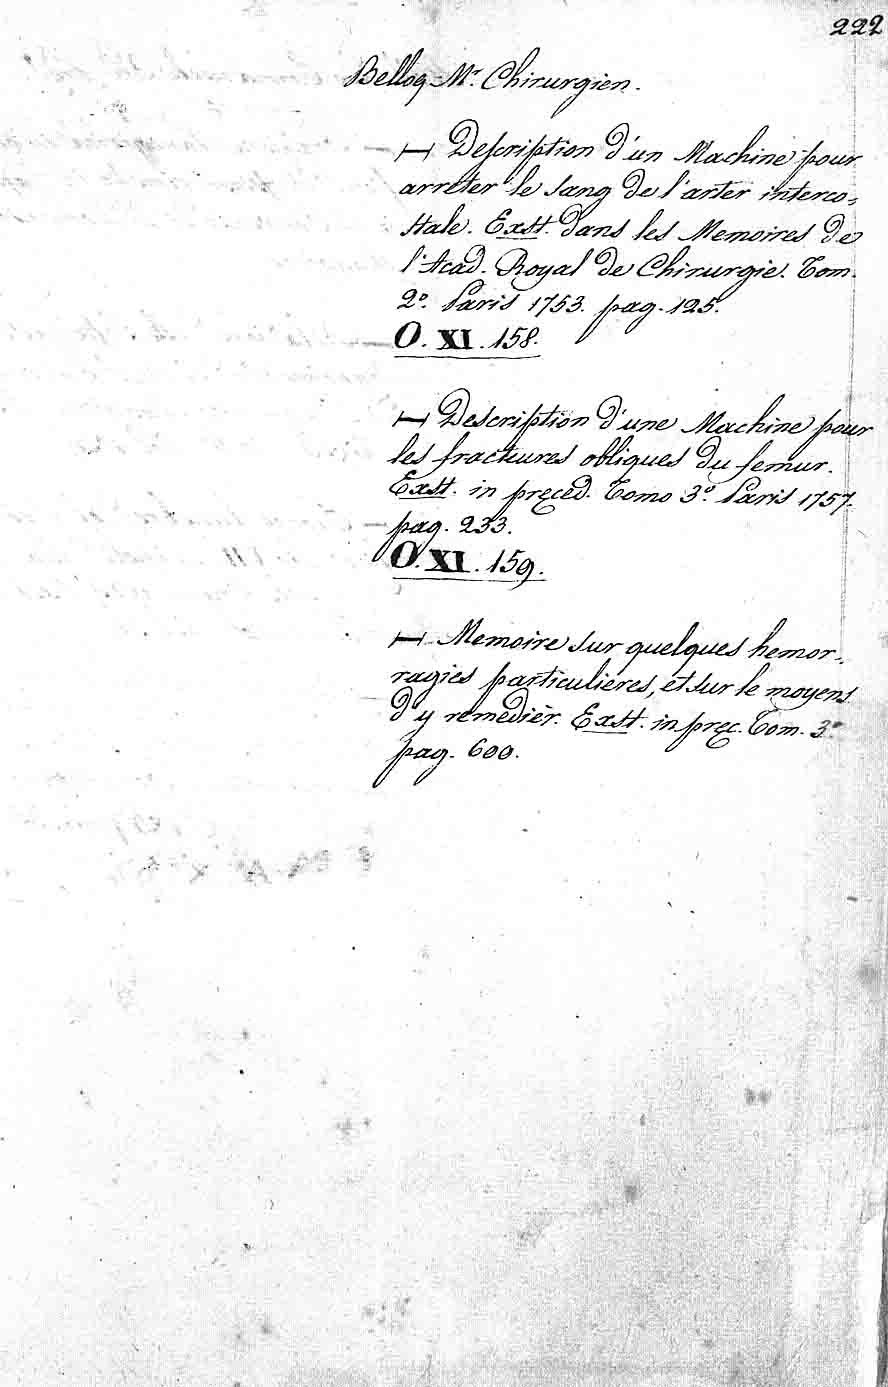 222
Belloq Mr. Chirurgien.
— Description d'un Machine pour
arrêter le sang de l'arter interco=
stale. Exst. dans les Memoires de
l'Acad. Royal de Chirurgie. Tom.
2o. Paris 1753. pag. 125.
O. XI. 158.
— Description d'une Machine pour
les fractures obliques du femur.
Exst. in preced. Tomo 3o. Paris 1757.
pag. 233.
O. XI. 159.
— Memoire sur quelques hemor-
ragies particulieres, et sur le moyens
d'y remedièr. Exst. in prec. Tom. 3o.
pag. 600.